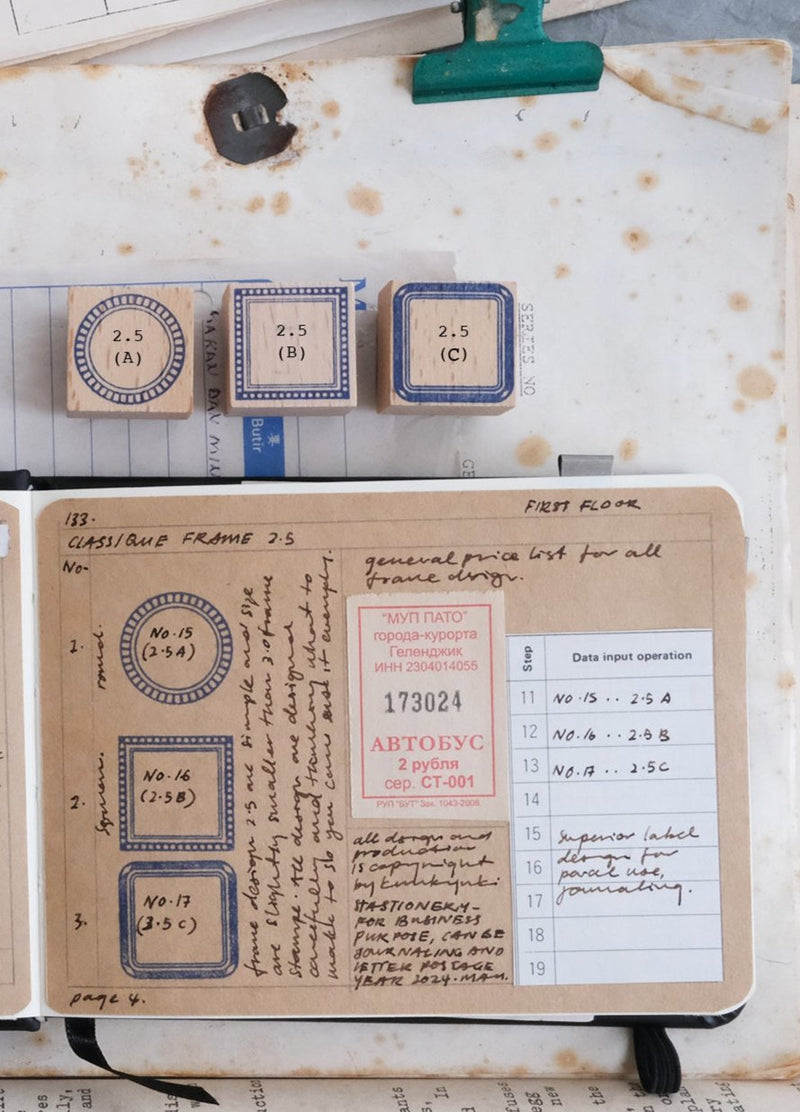 2.5
(A)
2.5
(B)
2.5
(C)
SERIES NO
Butir
133.
FIRST FLOOR
CLASSIQUE FRAME 2.5
No-
general price list for all
frame design.
1.
round.
No.15
(2.5A)
2.
square.
No.16
(2.5B)
3.
No.17
(3.5C)
frame design 2.5 are simple and size
are slightly smaller than 3.0 frame
stamps. All design are designed
carefully and
make to so you can
page 4.
"МУП ПАТО"
города-курорта
Геленджик
ИНН 2304014055
173024
АВТОБУС
2 рубля
сер. СТ-001
РУП "БУТ" Зак. 1043-2008
all design and
production
is copyright
by
STASTIONERY-
FOR BUSINESS
PURPOSE, CAN BE
JOURNALING AND
LETTER POSTAGE
YEAR 2024.
Step
Data input operation
11 NO.15 .. 2.5 A
12 NO.16 .. 2.5 B
13 NO.17 .. 2.5C
14
15 superior label
16 design for
use,
17 journaling.
18
19